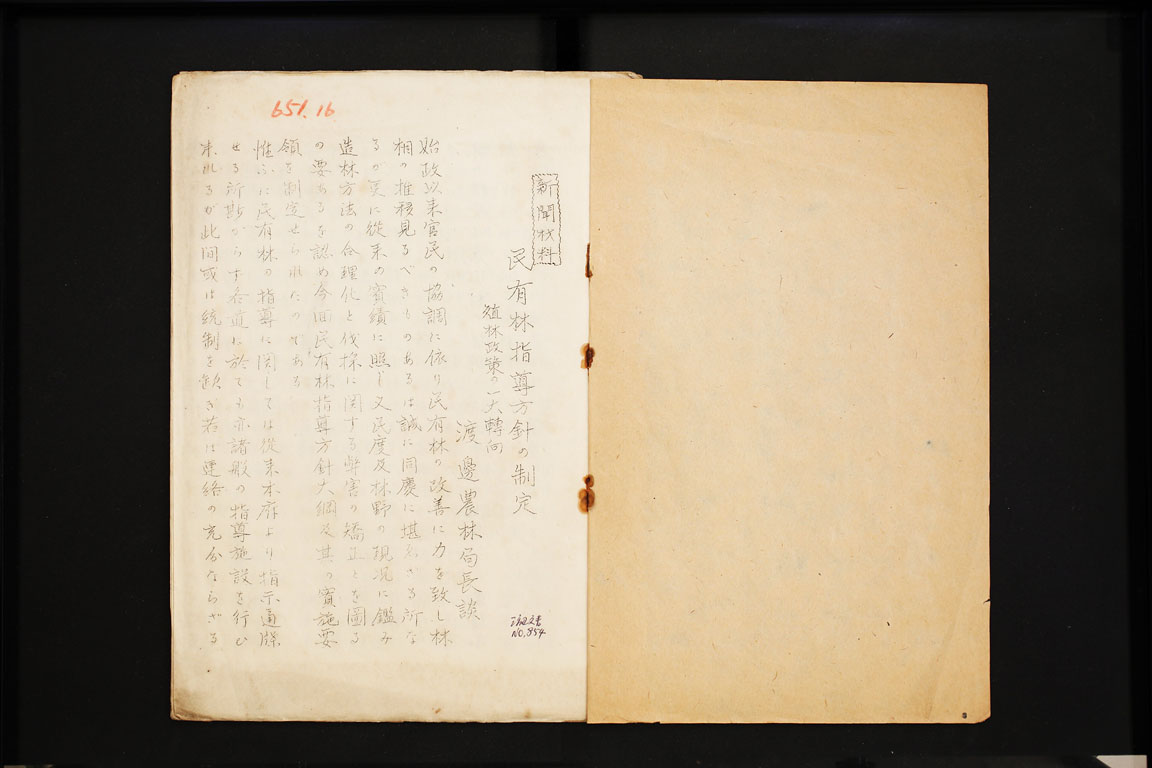 新聞材料
民有林指導方針の制定
殖林政策の一大轉向
渡邊農林局長談
始政以来官民の協調に依り民有林の改善に力を致し林
相の推移見るべきものあるは誠に同慶に堪えざる所な
るが更に從来の實績に照し又民度及林野の現況に鑑み
造林方法の合理化と伐採に関する弊害の矯正とを圖る
の要あるを認め今回民有林指導方針大綱及其の實施要
領を制定せられたのである
惟ふに民有林の指導に関しては從来本府より指示通牒
せる所尠からず各道に於ても亦諸般の指導施設を行ひ
来れるが此間或は統制を欠き若は連絡の充分ならざる
651.16
NO.854